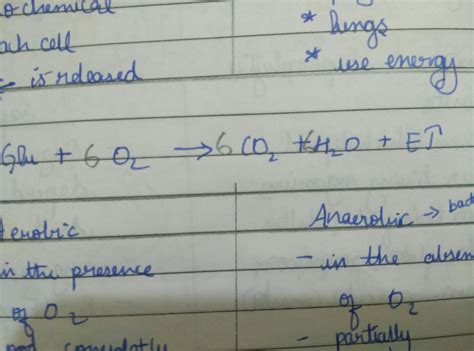 ochemical
ach cell
is released
* lungs
* use energy
Glu + 6 O₂ → 6 CO₂ + 6H₂O + E↑
Aerobic
in the presence
of O₂
Anaerobic → bac
- in the absen
of O₂
- partially